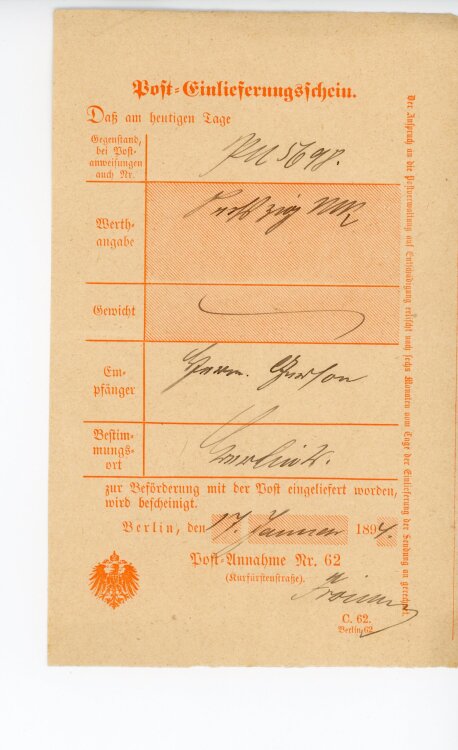 Post-Einlieferungsschein.
Daß am heutigen Tage
Gegenstand,
bei Post-
anweisungen
auch Nr.
PA 5698.
Werth-
angabe
Gewicht
Em-
pfänger
Herrn Gerson
Bestim-
mungs-
ort
Berlin
zur Beförderung mit der Post eingeliefert worden,
wird bescheinigt.
Berlin, den 17. Januar 1894.
Post-Annahme Nr. 62
(Kurfürstenstraße).
C. 62.
Berlin 62
Der Anspruch an die Postverwaltung auf Entschädigung erlischt nach sechs Monaten vom Tage der Einlieferung der Sendung an gerechnet.